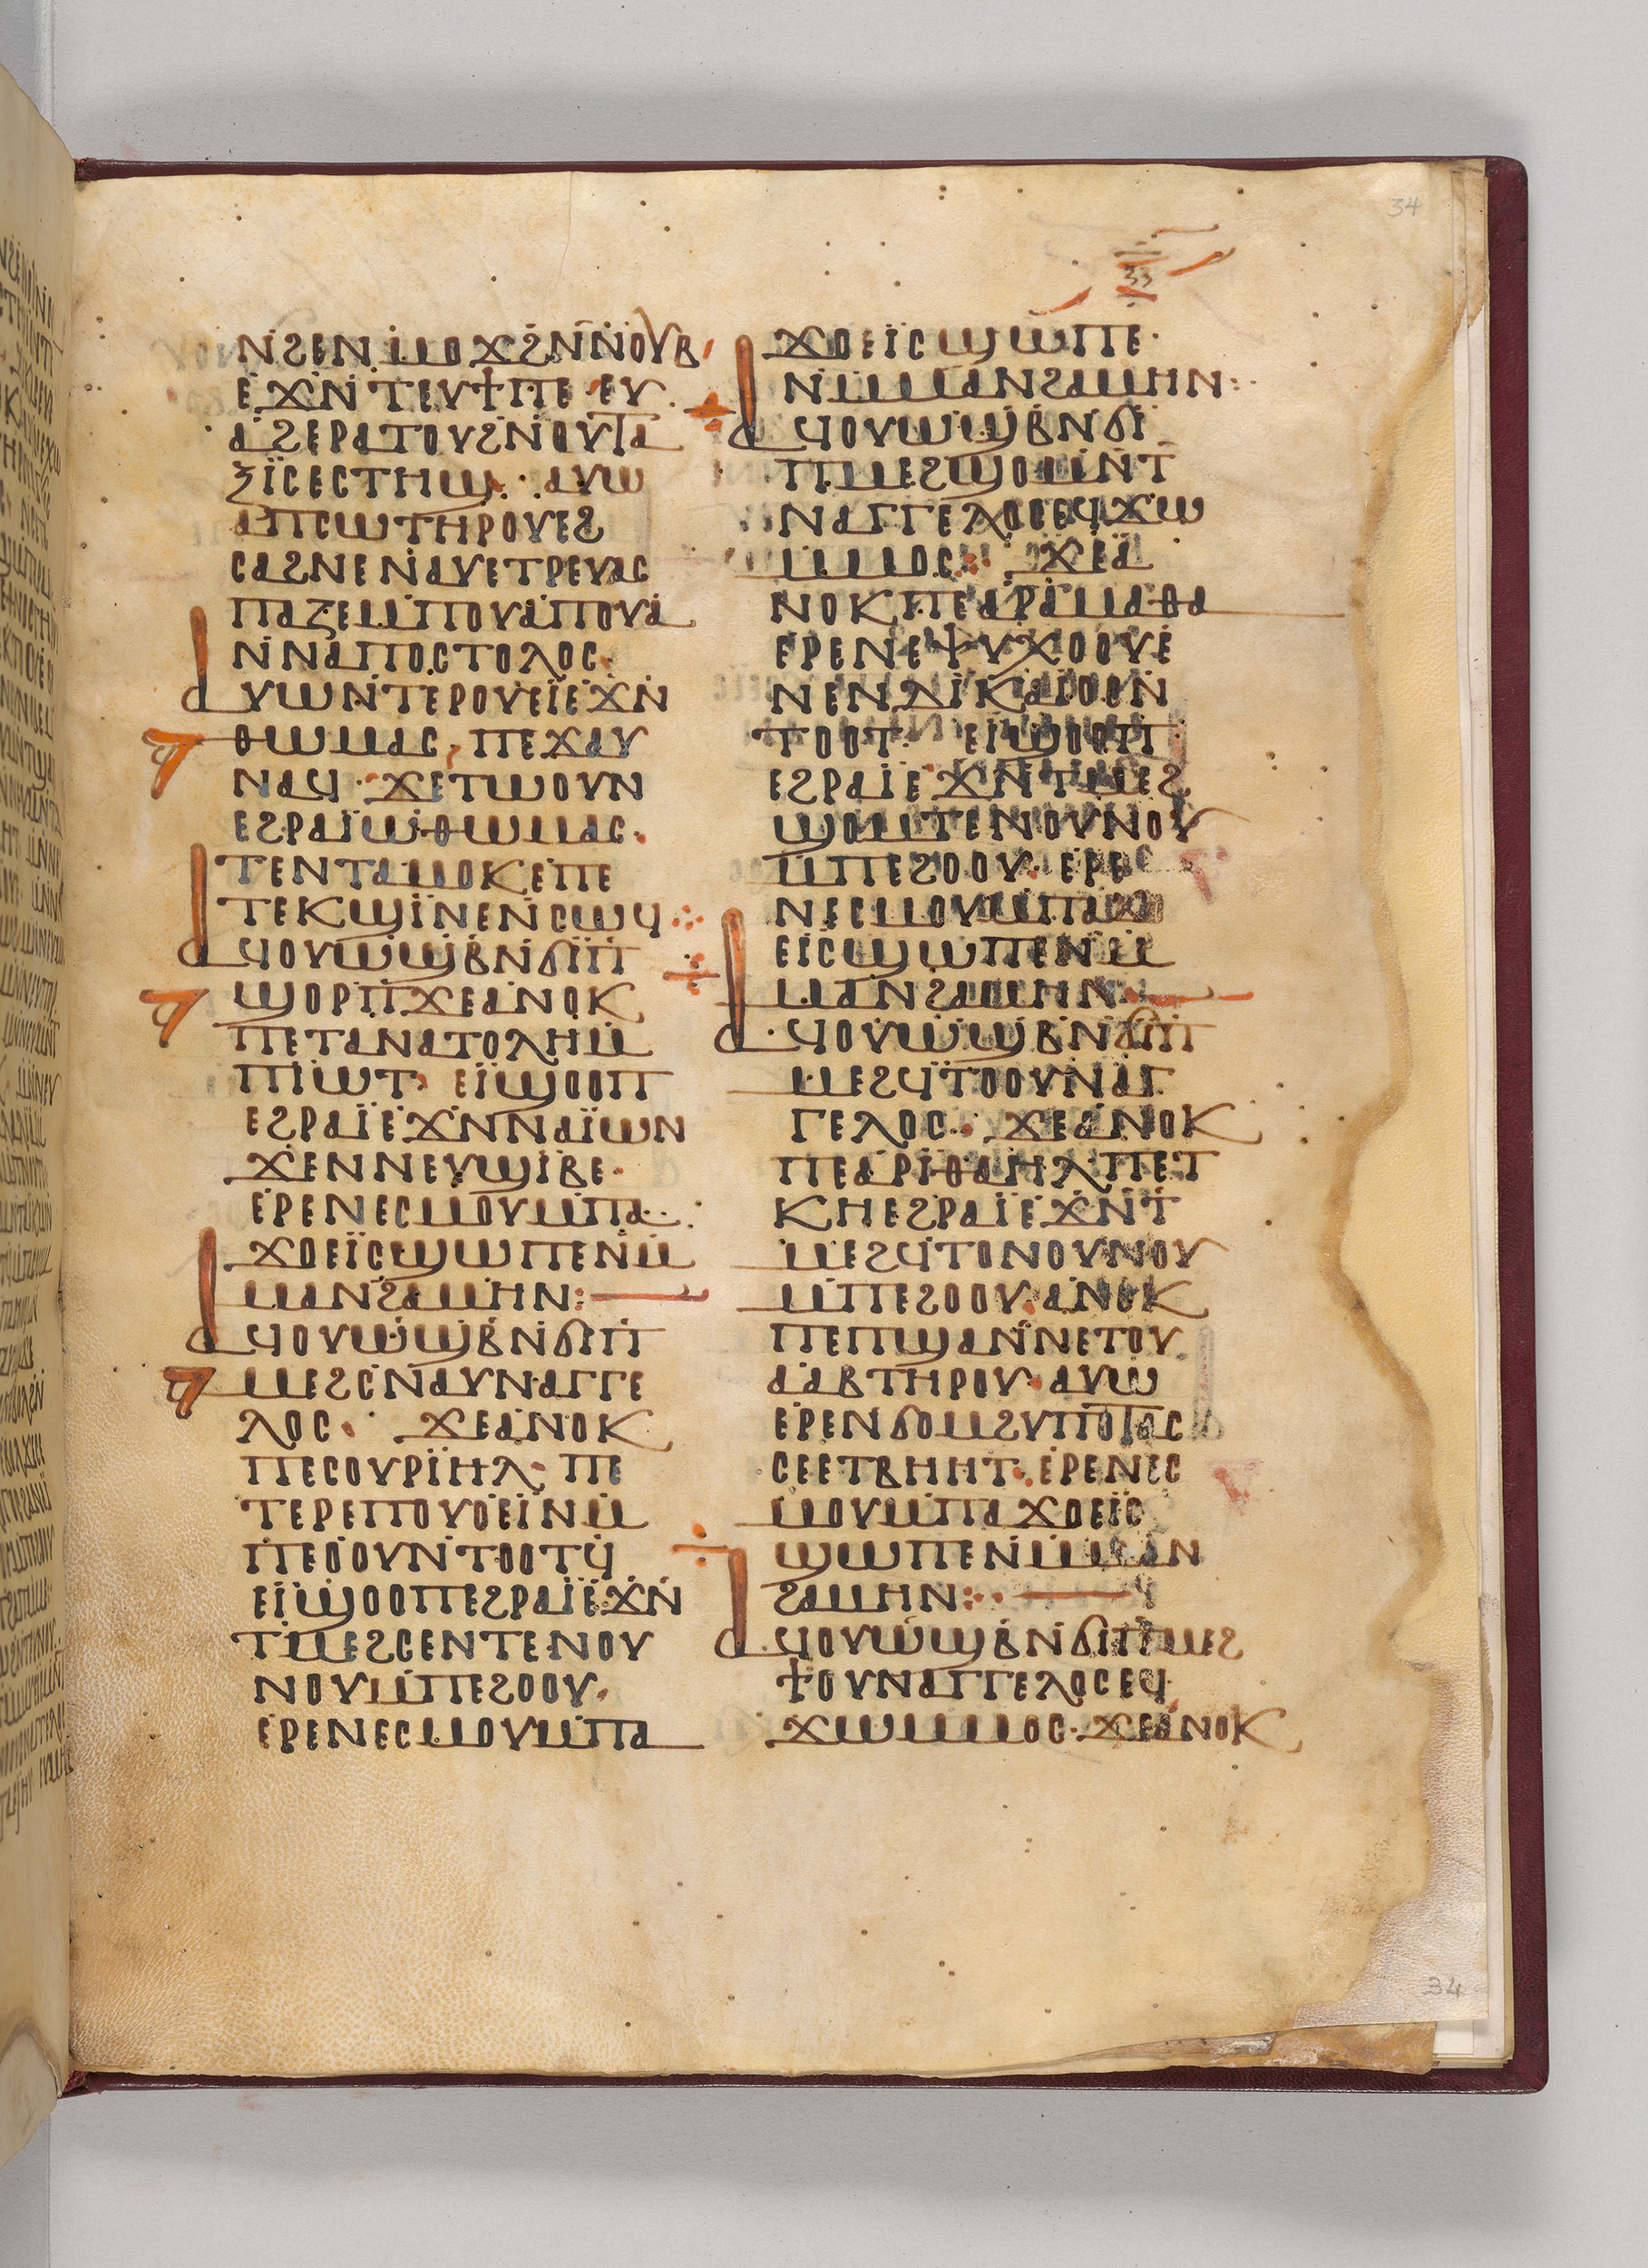 34
33
ⲚϨⲈⲚⲘⲞϪϨⲚⲚⲞⲨⲂ
ⲈϪⲚⲦⲈⲨϮⲠⲈ ⲈⲨ
ⲀϨⲈⲢⲀⲦⲞⲨϨⲚⲞⲨⲦⲀ
ⲜⲒⲤⲈⲤⲦⲎϢ· ⲀⲨⲰ
ⲀⲠⲤⲰⲦⲎⲢⲞⲨⲈϨ
ⲤⲀϨⲚⲈⲚⲀⲨⲈⲦⲢⲈⲨⲀⲤ
ⲠⲀⲌⲈⲘⲠⲞⲨⲀⲠⲞⲨⲀ
ⲚⲚⲀⲠⲞⲤⲦⲞⲖⲞⲤ·
ⲀⲨⲰⲚⲦⲈⲢⲞⲨⲈⲒⲈϪⲚ
ⲐⲰⲘⲀⲤ, ⲠⲈϪⲀⲨ
ⲚⲀϤ· ϪⲈⲦⲰⲞⲨⲚ
ⲈϨⲢⲀⲒⲰⲐⲰⲘⲀⲤ·
ⲦⲈⲚⲦⲀⲘⲞⲔⲈⲠⲈ
ⲦⲈⲔϢⲒⲚⲈⲚⲤⲰϤ⁘
ⲀϤⲞⲨⲰϢⲂⲚϬⲒⲠ
ϢⲞⲢⲠϪⲈⲀⲚⲞⲔ
ⲠⲈⲦⲀⲚⲀⲦⲞⲖⲎⲘ
ⲠⲒⲰⲦ· ⲈⲒϢⲞⲞⲠ
ⲈϨⲢⲀⲒⲈϪⲚⲚⲀⲒⲰⲚ
ϪⲈⲚⲚⲈⲨϢⲒⲂⲈ·
ⲈⲢⲈⲚⲈⲤⲘⲞⲨⲘⲠⲀ
ϪⲞⲈⲒⲤϢⲰⲠⲈⲚⲘ
ⲘⲀⲚϨⲀⲘⲎⲚ:
ⲀϤⲞⲨⲰϢⲂⲚϬⲒⲠ
ⲘⲈϨⲤⲚⲀⲨⲚⲀⲄⲄⲈ
ⲖⲞⲤ· ϪⲈⲀⲚⲞⲔ
ⲠⲈⲤⲞⲨⲢⲒⲎⲖ· ⲠⲈ
ⲦⲈⲢⲈⲠⲞⲨⲞⲈⲒⲚⲘ
ⲠⲈⲞⲞⲨⲚⲦⲞⲞⲦϤ
ⲈⲒϢⲞⲞⲠⲈϨⲢⲀⲒⲈϪⲚ
ⲦⲘⲈϨⲤⲈⲚⲦⲈⲚⲞⲨ
ⲚⲞⲨⲘⲠⲈϨⲞⲞⲨ·
ⲈⲢⲈⲚⲈⲤⲘⲞⲨⲘⲠⲀ
ϪⲞⲈⲒⲤϢⲰⲠⲈ·
ⲚⲘⲘⲀⲚϨⲀⲘⲎⲚ:
ⲀϤⲞⲨⲰϢⲂⲚϬⲒ
ⲠⲘⲈϨϢⲞⲘⲚⲦ
ⲚⲀⲄⲄⲈⲖⲞⲤⲈϤϪⲰ
ⲘⲘⲞⲤ⁘ ϪⲈⲀ
ⲚⲞⲔⲠⲈⲀⲢⲀⲘⲀⲐⲀ
ⲈⲢⲈⲚⲈⲮⲨⲬⲞⲞⲨⲈ
ⲚⲈⲚⲆⲒⲔⲀⲒⲞⲤⲚ
ⲦⲞⲞⲦ· ⲈⲒϢⲞⲞⲠ
ⲈϨⲢⲀⲒⲈϪⲚⲦⲘⲈϨ
ϢⲞⲘⲦⲈⲚⲞⲨⲚⲞⲨ
ⲘⲠⲈϨⲞⲞⲨ· ⲈⲢⲈ
ⲚⲈⲤⲘⲞⲨⲘⲠⲀϪⲞ
ⲈⲒⲤϢⲰⲠⲈⲚⲘ
ⲘⲀⲚϨⲀⲘⲎⲚ
ⲀϤⲞⲨⲰϢⲂⲚϬⲒⲠ
ⲘⲈϨϤⲦⲞⲞⲨⲚⲀⲄ
ⲄⲈⲖⲞⲤ· ϪⲈⲀⲚⲞⲔ
ⲠⲈⲀⲢⲒⲐⲀⲎⲖⲠⲈⲦ
ⲔⲎⲈϨⲢⲀⲒⲈϪⲚⲦ
ⲘⲈϨϤⲦⲞⲚⲞⲨⲚⲞⲨ
ⲘⲠⲈϨⲞⲞⲨ·ⲀⲚⲞⲔ
ⲠⲈⲠϢⲀⲚⲚⲈⲦⲞⲨ
ⲀⲀⲂⲦⲎⲢⲞⲨ·ⲀⲨⲰ
ⲈⲢⲈⲚϬⲞⲘϨⲨⲠⲞⲦⲀⲤ
ⲤⲈⲈⲦⲂⲎⲎⲦ·ⲈⲢⲈⲚⲈⲤ
ⲘⲞⲨⲘⲠⲀϪⲞⲈⲒⲤ
ϢⲰⲠⲈⲚⲘⲘⲀⲚ
ϨⲀⲘⲎⲚ⁘
ⲀϤⲞⲨⲰϢⲂⲚϬⲒⲠⲘⲈϨ
ϮⲞⲨⲚⲀⲄⲄⲈⲖⲞⲤⲈϤ
ϪⲰⲘⲘⲞⲤ·ϪⲈⲀⲚⲞⲔ
34